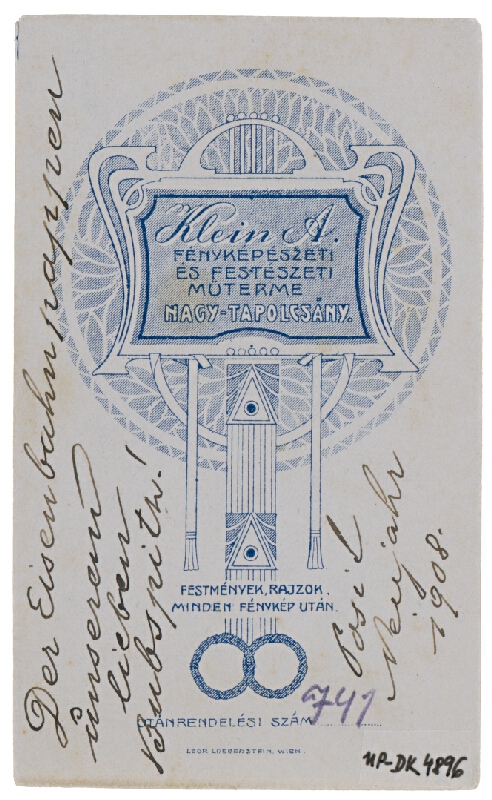 Klein A.
FÉNYKÉPÉSZETI
ÉS FESTÉSZETI
MŰTERME
NAGY-TAPOLCSÁNY.
FESTMÉNYEK, RAJZOK,
MINDEN FÉNYKÉP UTÁN.
UTÁNRENDELÉSI SZÁM 741
LEOP. LOEBENSTEIN, WIEN.
Der Eisenbahnpappen
unserem
lieben
Neujahr
1908.
MP-DK 4896